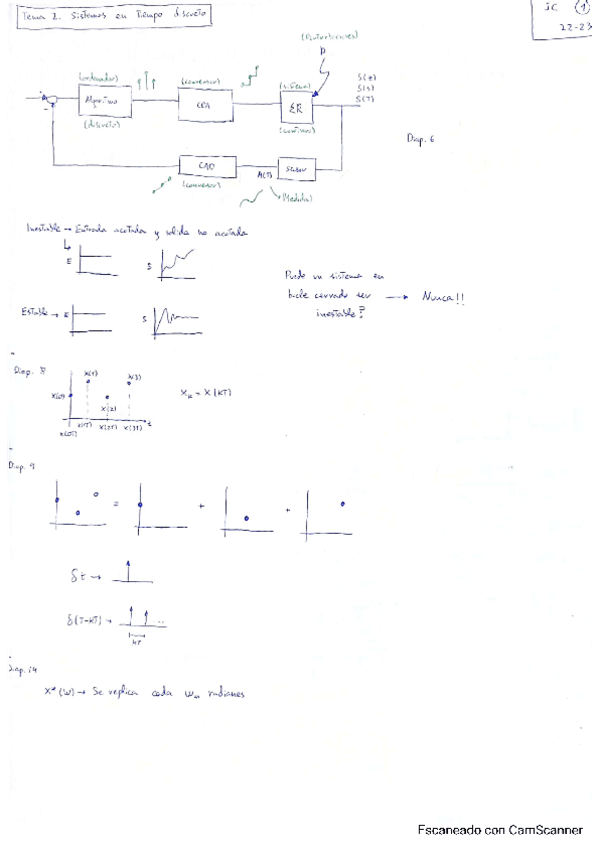 Tema 2. Sistemas en Tiempo discreto
IC 1
22-23
(Perturbaciones)
D
(ordenador)
(conversor)
(sistema)
S(z)
S(s)
S(T)
Algoritmo
CDA
ER
(discreto)
(continuo)
Diap. 6
CAD
Sensor
(conversor)
(Medida)
Inestable → Entrada acotada y salida no acotada
E
S
Puede un sistema en
bucle cerrado ser → Nunca!!
inestable?
Estable → E
S
Diap. 8
X(0)
X(1)
X(2)
X(3)
t
X(0T) X(1T) X(2T) X(3T)
Xk = X(kT)
Diap. 9
= + +
δt →
δ(T-kT) → ..
kT
Diap. 14
X*(w) → Se replica cada radianes
Escaneado con CamScanner